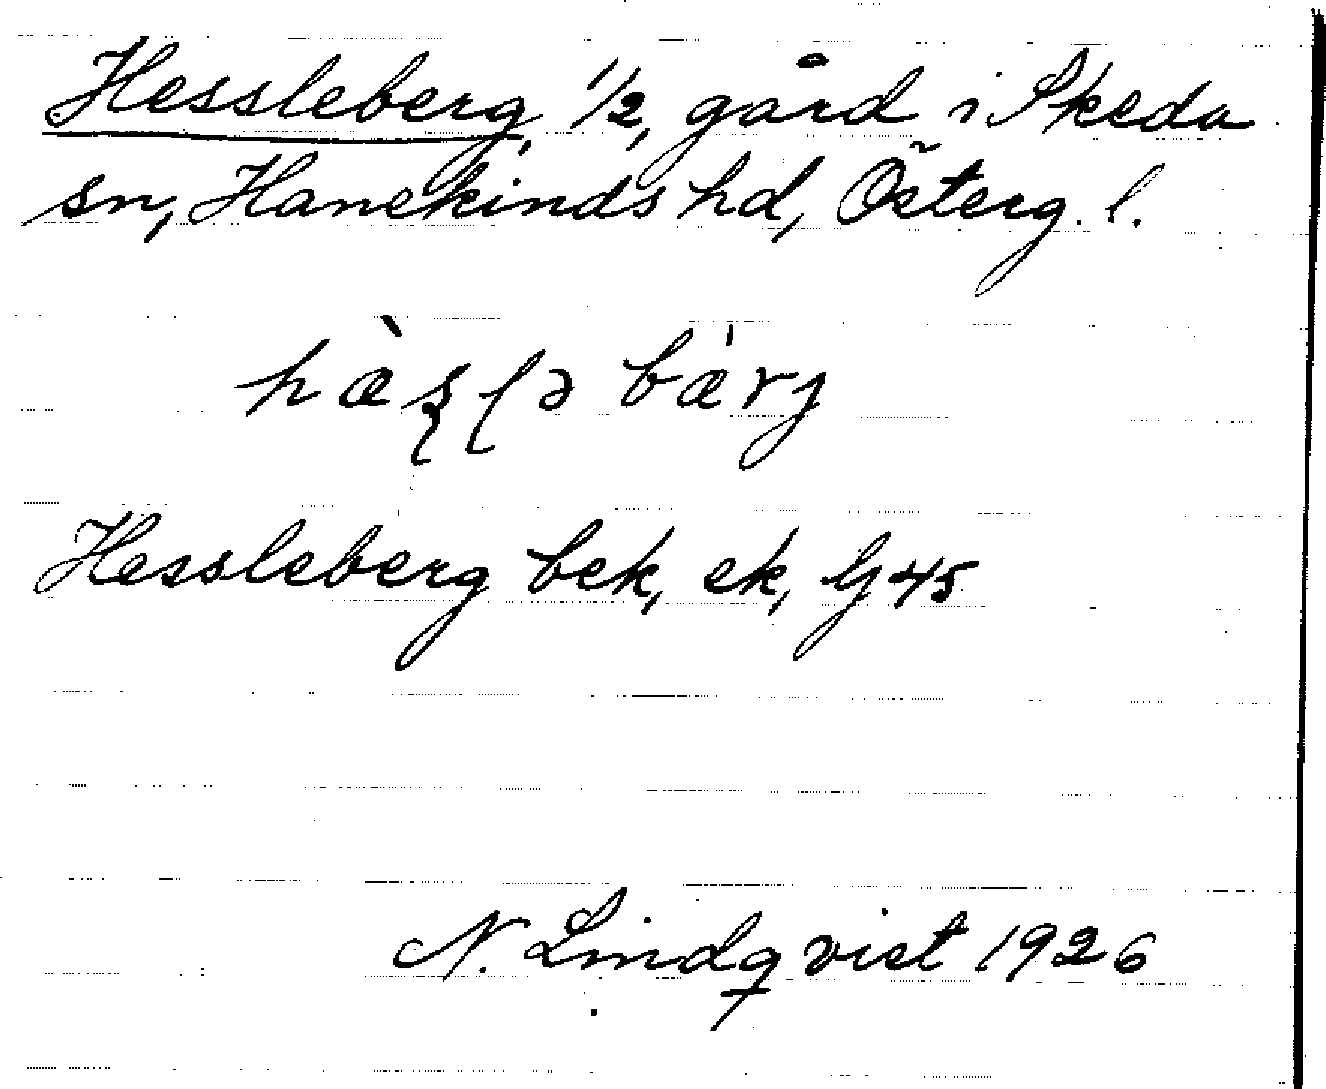 Hessleberg, 1/2, gård i Skeda
sn, Hanekinds hd, Österg. l.
hæ̀ʂɭə bæ̍rj
Hessleberg bek, ek, Gj 45
N. Lindqvist 1926